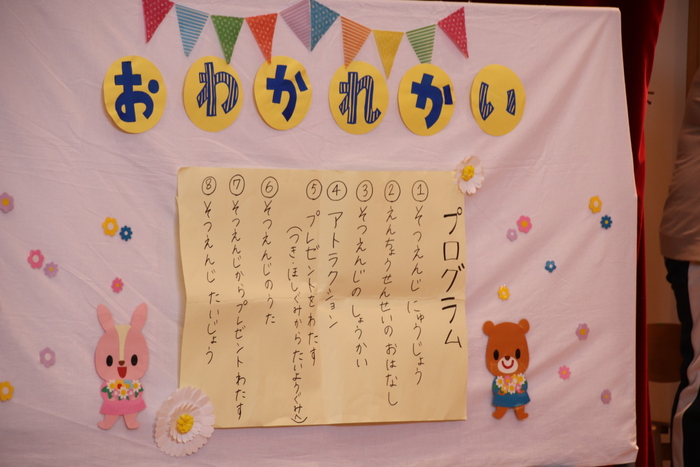 おわかれかい
プログラム
①そつえんじにゅうじょう
②えんちょうせんせいのおはなし
③そつえんじのしょうかい
④アトラクション
⑤プレゼントをわたす
(つき・ほしぐみからたいようぐみへ)
⑥そつえんじのうた
⑦そつえんじからプレゼントわたす
⑧そつえんじたいじょう